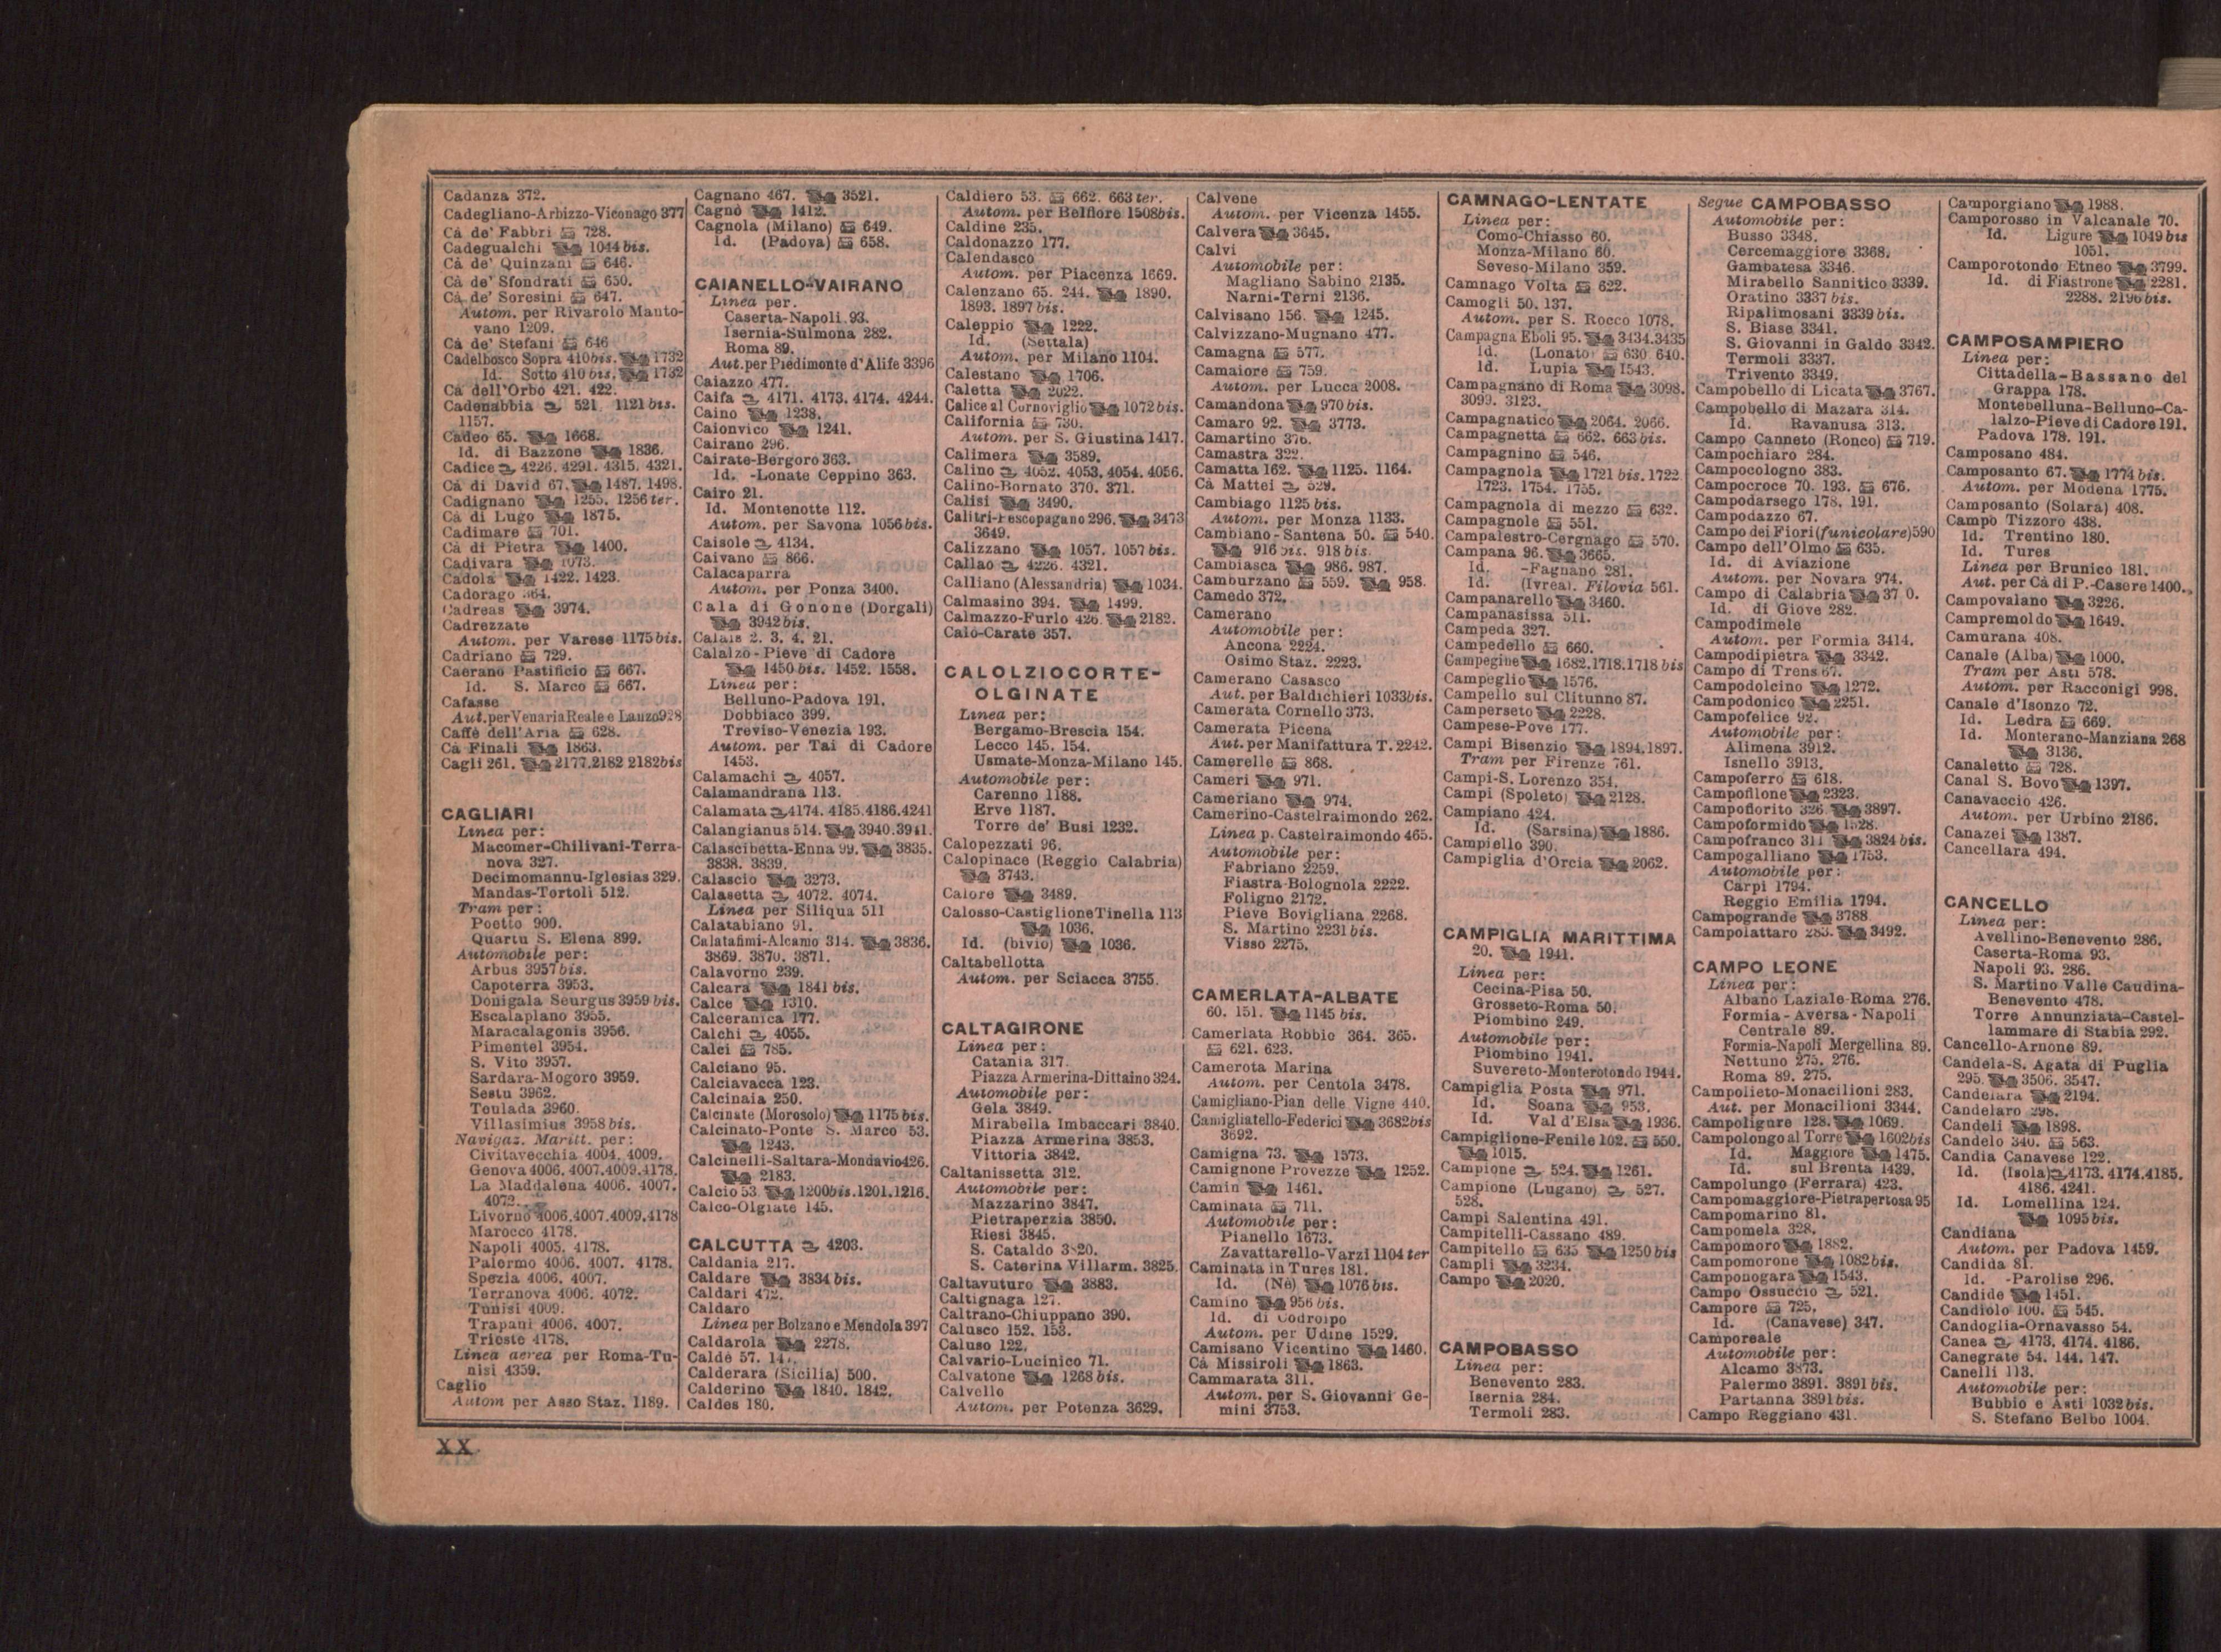 Cadanza 372.
Cadegliano-Arbizzo-Viconago 377
Cà de' Fabbri 728.
Cadegualchi 1044 bis.
Cà de' Quinzani 646.
Cà de' Sfondrati 650.
Cà de' Soresini 647.
Autom. per Rivarolo Manto-
vano 1209.
Cà de' Stefani 646
Cadelbosco Sopra 410 bis. 1732
Id. Sotto 410 bis. 1732
Cà dell'Orbo 421. 422.
Cadenabbia 521. 1121 bis.
1157.
Cadeo 65. 1668.
Id. di Bazzone 1836.
Cadice 4226. 4291. 4315. 4321.
Cà di David 67. 1487. 1498.
Cadignano 1255. 1256 ter.
Cà di Lugo 1875.
Cadimare 701.
Cà di Pietra 1400.
Cadivara 1073.
Cadola 1422. 1423.
Cadorago 364.
Cadreas 3974.
Cadrezzate
Autom. per Varese 1175 bis.
Cadriano 729.
Caerano Pastificio 667.
Id. S. Marco 667.
Cafasse
Aut. per Venaria Reale e Lanzo 928
Caffè dell'Aria 628.
Cà Finali 1863.
Cagli 261. 2177. 2182 2182bis
CAGLIARI
Linea per:
Macomer-Chilivani-Terra-
nova 327.
Decimomannu-Iglesias 329.
Mandas-Tortolì 512.
Tram per:
Poetto 900.
Quartu S. Elena 899.
Automobile per:
Arbus 3957 bis.
Capoterra 3953.
Donigala Seurgus 3959 bis.
Escalaplano 3955.
Maracalagonis 3956.
Pimentel 3954.
S. Vito 3957.
Sardara-Mogoro 3959.
Sestu 3962.
Teulada 3960.
Villasimius 3958 bis.
Navigaz. Maritt. per:
Civitavecchia 4004. 4009.
Genova 4006. 4007. 4009. 4178.
La Maddalena 4006. 4007.
4072.
Livorno 4006. 4007. 4009. 4178
Marocco 4178.
Napoli 4005. 4178.
Palermo 4006. 4007. 4178.
Spezia 4006. 4007.
Terranova 4006. 4072.
Tunisi 4009.
Trapani 4006. 4007.
Trieste 4178.
Linea aerea per Roma-Tu-
nisi 4359.
Caglio
Autom per Asso Staz. 1189.
Cagnano 467. 3521.
Cagnò 1412.
Cagnola (Milano) 649.
Id. (Padova) 658.
CAIANELLO-VAIRANO
Linea per.
Caserta-Napoli 93.
Isernia-Sulmona 282.
Roma 89.
Aut. per Piedimonte d'Alife 3396
Caiazzo 477.
Caifa 4171. 4173. 4174. 4244.
Caino 1238.
Caionvico 1241.
Cairano 296.
Cairate-Bergoro 363.
Id. -Lonate Ceppino 363.
Cairo 21.
Id. Montenotte 112.
Autom. per Savona 1056 bis.
Caisole 4134.
Caivano 866.
Calacaparra
Autom. per Ponza 3400.
Cala di Gonone (Dorgali)
3942 bis.
Calais 2. 3. 4. 21.
Calalzo-Pieve di Cadore
1450 bis. 1452. 1558.
Linea per:
Belluno-Padova 191.
Dobbiaco 399.
Treviso-Venezia 193.
Autom. per Tai di Cadore
1453.
Calamachi 4057.
Calamandrana 113.
Calamata 4174. 4185. 4186. 4241
Calangianus 514. 3940. 3941.
Calascibetta-Enna 99. 3835.
3838. 3839.
Calascio 3273.
Calasetta 4072. 4074.
Linea per Siliqua 511
Calatabiano 91.
Calatafimi-Alcamo 314. 3836.
3869. 3870. 3871.
Calavorno 239.
Calcara 1841 bis.
Calce 1310.
Calceranica 177.
Calchi 4055.
Calci 785.
Calciano 95.
Calciavacca 123.
Calcinaia 250.
Calcinate (Morosolo) 1175 bis.
Calcinato-Ponte S. Marco 53.
1243.
Calcinelli-Saltara-Mondavio 426.
2183.
Calcio 53. 1200bis. 1201. 1216.
Calco-Olgiate 145.
CALCUTTA 4203.
Caldania 217.
Caldare 3834 bis.
Caldari 472.
Caldaro
Linea per Bolzano e Mendola 397
Caldarola 2278.
Caldè 57.
Calderara (Sicilia) 500.
Calderino 1840. 1842.
Caldes 180.
Caldiero 53. 662. 663 ter.
Autom. per Belfiore 1508bis.
Caldine 235.
Caldonazzo 177.
Calendasco
Autom. per Piacenza 1669.
Calenzano 65. 244. 1890.
1893. 1897 bis.
Caleppio 1222.
Id. (Settala)
Autom. per Milano 1104.
Calestano 1706.
Caletta 2022.
Calice al Cornoviglio 1072 bis.
California 730.
Autom. per S. Giustina 1417.
Calimera 3589.
Calino 4052. 4053. 4054. 4056.
Calino-Bornato 370. 371.
Calisi 3490.
Calitri-Pescopagano 296. 3473
3649.
Calizzano 1057. 1057 bis.
Callao 4226. 4321.
Calliano (Alessandria) 1034.
Calmasino 394. 1499.
Calmazzo-Furlo 426. 2182.
Calò-Carate 357.
CALOLZIOCORTE-
OLGINATE
Linea per:
Bergamo-Brescia 154.
Lecco 145. 154.
Usmate-Monza-Milano 145.
Automobile per:
Carenno 1188.
Erve 1187.
Torre de' Busi 1232.
Calopezzati 96.
Calopinace (Reggio Calabria)
3743.
Calore 3489.
Calosso-Castiglione Tinella 113
1036.
Id. (bivio) 1036.
Caltabellotta
Autom. per Sciacca 3755.
CALTAGIRONE
Linea per:
Catania 317.
Piazza Armerina-Dittaino 324.
Automobile per:
Gela 3849.
Mirabella Imbaccari 3840.
Piazza Armerina 3853.
Vittoria 3842.
Caltanissetta 312.
Automobile per:
Mazzarino 3847.
Pietraperzia 3850.
Riesi 3845.
S. Cataldo
S. Caterina Villarm. 3825.
Caltavuturo 3883.
Caltignaga 127.
Caltrano-Chiuppano 390.
Calusco 152. 153.
Caluso 122.
Calvario-Lucinico 71.
Calvatone 1268 bis.
Calvello
Autom. per Potenza 3629.
Calvene
Autom. per Vicenza 1455.
Calvera 3645.
Calvi
Automobile per:
Magliano Sabino 2135.
Narni-Terni 2136.
Calvisano 156. 1245.
Calvizzano-Mugnano 477.
Camagna 577.
Camaiore 759.
Autom. per Lucca 2008.
Camandona 970 bis.
Camaro 92. 3773.
Camartino 376.
Camastra 322.
Camatta 162. 1125. 1164.
Cà Mattei 529.
Cambiago 1125 bis.
Autom. per Monza 1133.
Cambiano-Santena 50. 540.
916 bis. 918 bis.
Cambiasca 986. 987.
Camburzano 559. 958.
Camedo 372.
Camerano
Automobile per:
Ancona 2224.
Osimo Staz. 2223.
Camerano Casasco
Aut. per Baldichieri 1033bis.
Camerata Cornello 373.
Camerata Picena
Aut. per Manifattura T. 2242.
Camerelle 868.
Cameri 971.
Cameriano 974.
Camerino-Castelraimondo 262.
Linea p. Castelraimondo 465.
Automobile per:
Fabriano 2259.
Fiastra-Bolognola 2222.
Foligno 2172.
Pieve Bovigliana 2268.
S. Martino 2231 bis.
Visso 2275.
CAMERLATA-ALBATE
60. 151. 1145 bis.
Camerlata Robbio 364. 365.
621. 623.
Camerota Marina
Autom. per Centola 3478.
Camigliano-Pian delle Vigne 440.
Camigliatello-Federici 3682bis
3692.
Camigna 73. 1573.
Camignone Provezze 1252.
Camin 1461.
Caminata 711.
Automobile per:
Pianello 1673.
Zavattarello-Varzi 1104 ter
Caminata in Tures 181.
Id. (Nè) 1076 bis.
Camino 956 bis.
Id. di Codroipo
Autom. per Udine 1529.
Camisano Vicentino 1460.
Cà Missiroli 1863.
Cammarata 311.
Autom. per S. Giovanni Ge-
mini 3753.
CAMNAGO-LENTATE
Linea per:
Como-Chiasso 60.
Monza-Milano 60.
Seveso-Milano 359.
Camnago Volta 622.
Camogli 50. 137.
Autom. per S. Rocco 1078.
Campagna Eboli 95. 3434. 3435
Id. (Lonato) 630. 640.
Id. Lupia 1543.
Campagnano di Roma 3098.
3099. 3123.
Campagnatico 2064. 2066.
Campagnetta 662. 663 bis.
Campagnino 546.
Campagnola 1721 bis. 1722
1723. 1754. 1755.
Campagnola di mezzo 632.
Campagnole 551.
Campalestro-Cergnago 570.
Campana 96. 3665.
Id. -Fagnano 281.
Id. (Ivrea). Filovia 561.
Campanarello 3460.
Campanasissa 511.
Campeda 327.
Campedello 660.
Campegine 1682. 1718. 1718 bis
Campeglio 1576.
Campello sul Clitunno 87.
Camperseto 2228.
Campese-Pove 177.
Campi Bisenzio 1894. 1897.
Tram per Firenze 761.
Campi-S. Lorenzo 354.
Campi (Spoleto) 2128.
Campiano 424.
Id. (Sarsina) 1886.
Campiello 390.
Campiglia d'Orcia 2062.
CAMPIGLIA MARITTIMA
20. 1941.
Linea per:
Cecina-Pisa 50.
Grosseto-Roma 50.
Piombino 249.
Automobile per:
Piombino 1941.
Suvereto-Monterotondo 1944.
Campiglia Posta 971.
Id. Soana 953.
Id. Val d'Elsa 1936.
Campiglione-Fenile 102. 550.
1015.
Campione 524. 1261.
Campione (Lugano) 527.
528.
Campi Salentina 491.
Campitelli-Cassano 489.
Campitello 635 1250 bis
Campli 3234.
Campo 2020.
CAMPOBASSO
Linea per:
Benevento 283.
Isernia 284.
Termoli 283.
Segue CAMPOBASSO
Automobile per:
Busso 3348.
Cercemaggiore 3368.
Gambatesa 3346.
Mirabello Sannitico 3339.
Oratino 3337 bis.
Ripalimosani 3339 bis.
S. Biase 3341.
S. Giovanni in Galdo 3342.
Termoli 3337.
Trivento 3349.
Campobello di Licata 3767.
Campobello di Mazara 314.
Id. Ravanusa 313.
Campo Canneto (Ronco) 719.
Campochiaro 284.
Campocologno 383.
Campocroce 70. 193. 676.
Campodarsego 178. 191.
Campodazzo 67.
Campo dei Fiori (funicolare) 590
Campo dell'Olmo 635.
Id. di Aviazione
Autom. per Novara 974.
Campo di Calabria
Id. di Giove 282.
Campodimele
Autom. per Formia 3414.
Campodipietra 3342.
Campo di Trens 67.
Campodolcino 1272.
Campodonico 2251.
Campofelice 92.
Automobile per:
Alimena 3912.
Isnello 3913.
Campoferro 618.
Campofilone 2323.
Campofiorito 326. 3897.
Campoformido 1528.
Campofranco 311 3824 bis.
Campogalliano 1753.
Automobile per:
Carpi 1794.
Reggio Emilia 1794.
Campogrande 3788
Campolattaro 283. 3492.
CAMPO LEONE
Linea per:
Albano Laziale-Roma 276.
Formia-Aversa-Napoli
Centrale 89.
Formia-Napoli Mergellina 89.
Nettuno 275. 276.
Roma 89. 275.
Campolieto-Monacilioni 283.
Aut. per Monacilioni 3344.
Campoligure 128. 1069.
Campolongo al Torre 1602bis
Id. Maggiore 1475.
Id. sul Brenta 1439.
Campolungo (Ferrara) 423.
Campomaggiore-Pietrapertosa 95
Campomarino 81.
Campomela 328.
Campomoro 1882.
Campomorone 1082 bis.
Camponogara 1543.
Campo Ossuccio 521.
Campore 725.
Id. (Canavese) 347.
Camporeale
Automobile per:
Alcamo 3873.
Palermo 3891. 3891 bis.
Partanna 3891 bis.
Campo Reggiano 431.
Camporgiano 1988.
Camporosso in Valcanale 70.
Id. Ligure 1049 bis
1051.
Camporotondo Etneo 3799.
Id. di Fiastrone 2281.
2288. 2196 bis.
CAMPOSAMPIERO
Linea per:
Cittadella-Bassano del
Grappa 178.
Montebelluna-Belluno-Ca-
lalzo-Pieve di Cadore 191.
Padova 178. 191.
Camposano 484.
Camposanto 67. 1774 bis.
Autom. per Modena 1775.
Camposanto (Solara) 408.
Campo Tizzoro 438.
Id. Trentino 180.
Id. Tures
Linea per Brunico 181.
Aut. per Cà di P.-Casere 1400.
Campovalano 3226.
Campremoldo 1649.
Camurana 408.
Canale (Alba) 1000.
Tram per Asti 578.
Autom. per Racconigi 998.
Canale d'Isonzo 72.
Id. Ledra 669.
Id. Monterano-Manziana 268
3136.
Canaletto 728.
Canal S. Bovo 1397.
Canavaccio 426.
Autom. per Urbino 2186.
Canazei 1387.
Cancellara 494.
CANCELLO
Linea per:
Avellino-Benevento 286.
Caserta-Roma 93.
Napoli 93. 286.
S. Martino Valle Caudina-
Benevento 478.
Torre Annunziata-Castel-
lammare di Stabia 292.
Cancello-Arnone 89.
Candela-S. Agata di Puglia
295. 3506. 3547.
Candelara 2194.
Candelaro 298.
Candeli 1898.
Candelo 340. 563.
Candia Canavese 122.
Id. (Isola) 4173. 4174. 4185.
4186. 4241.
Id. Lomellina 124.
1095 bis.
Candiana
Autom. per Padova 1459.
Candida 81.
Id. -Parolise 296.
Candide 1451.
Candiolo 100. 545.
Candoglia-Ornavasso 54.
Canea 4173. 4174. 4186.
Canegrate 54. 144. 147.
Canelli 113.
Automobile per:
Bubbio e Asti 1032 bis.
S. Stefano Belbo 1004.
XX